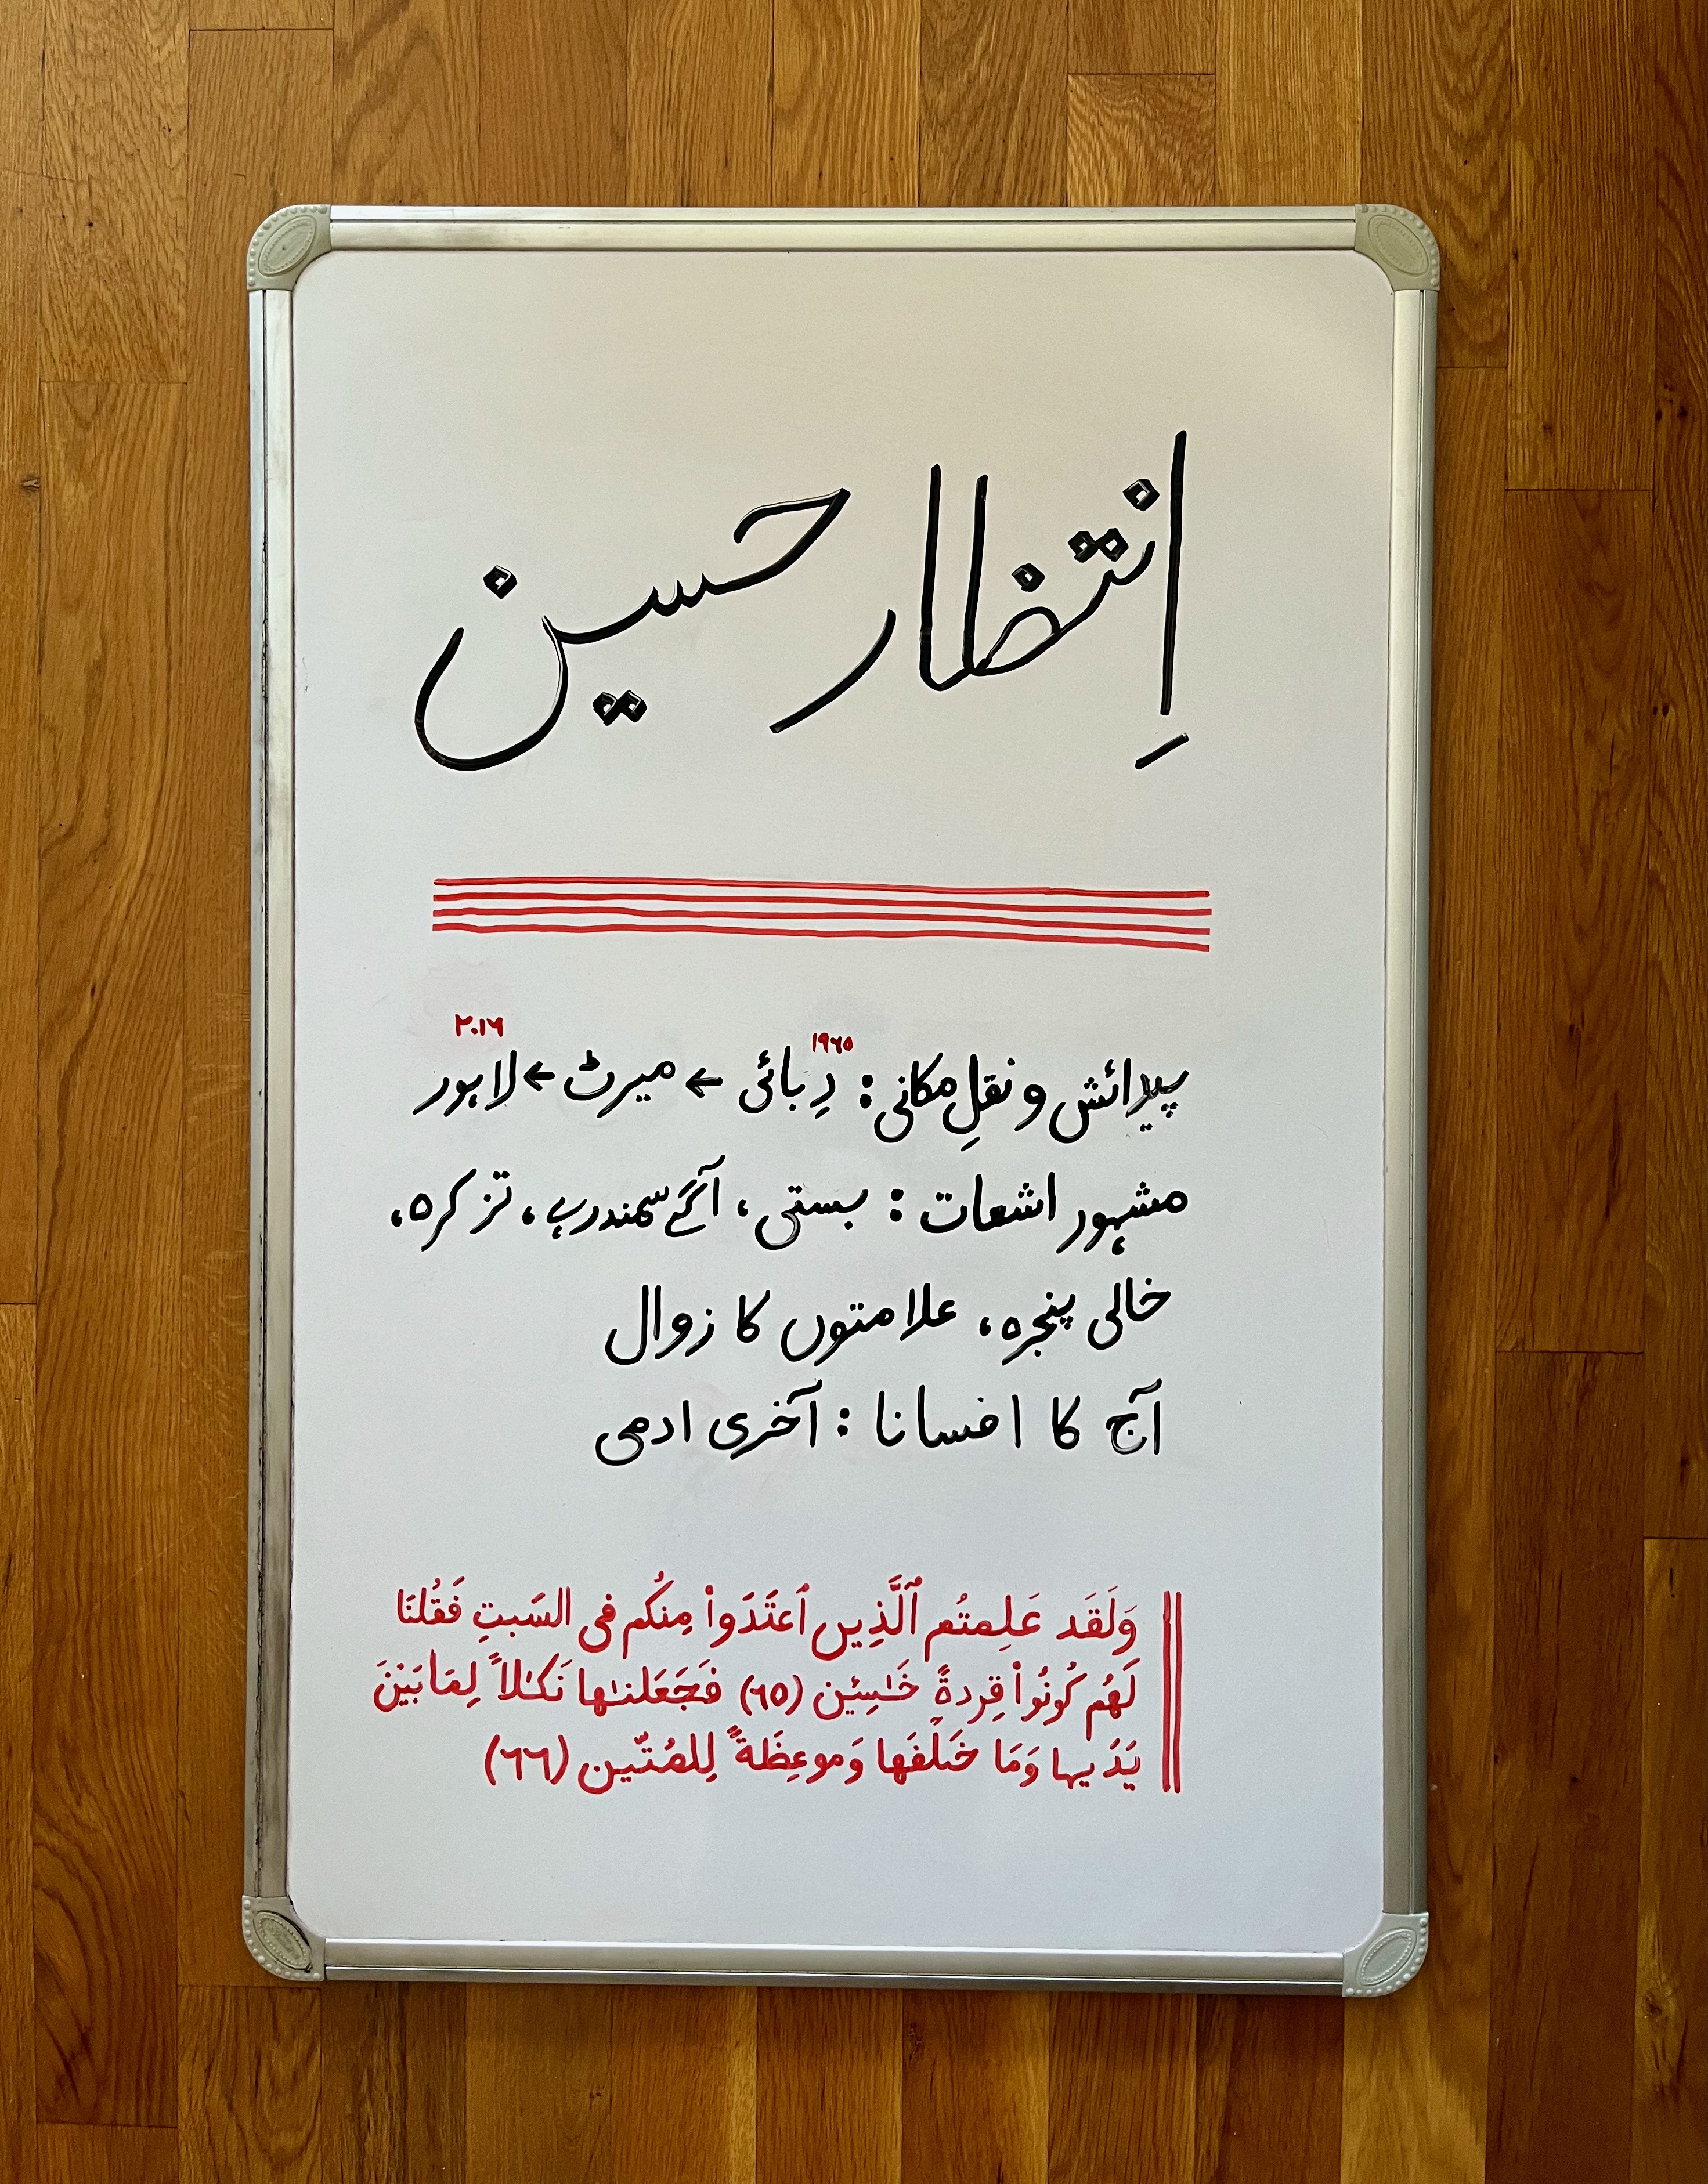 اِنتظار حسین
۱۹۶۵ ۲۰۱۶
پیدائش و نقلِ مکانی: دِبائی ← میرٹ ← لاہور
مشہور اشعات: بستی، آگے سمندر ہے، تزکرہ،
خالی پنجرہ، علامتوں کا زوال
آج کا افسانا: آخری ادمی
وَلَقَد عَلِمتُم ٱلَّذِين ٱعتَدَواْ مِنكُم في السَبتِ فَقُلنَا
لَهُم كُونُواْ قِردةً خَـٰسِـِٔين (٦٥) فَجَعَلنـٰها نَكـٰلاً لِمَا بَيْنَ
يَدَيها وَمَا خَلفَها وَموعِظَةً لِلمُتّين (٦٦)